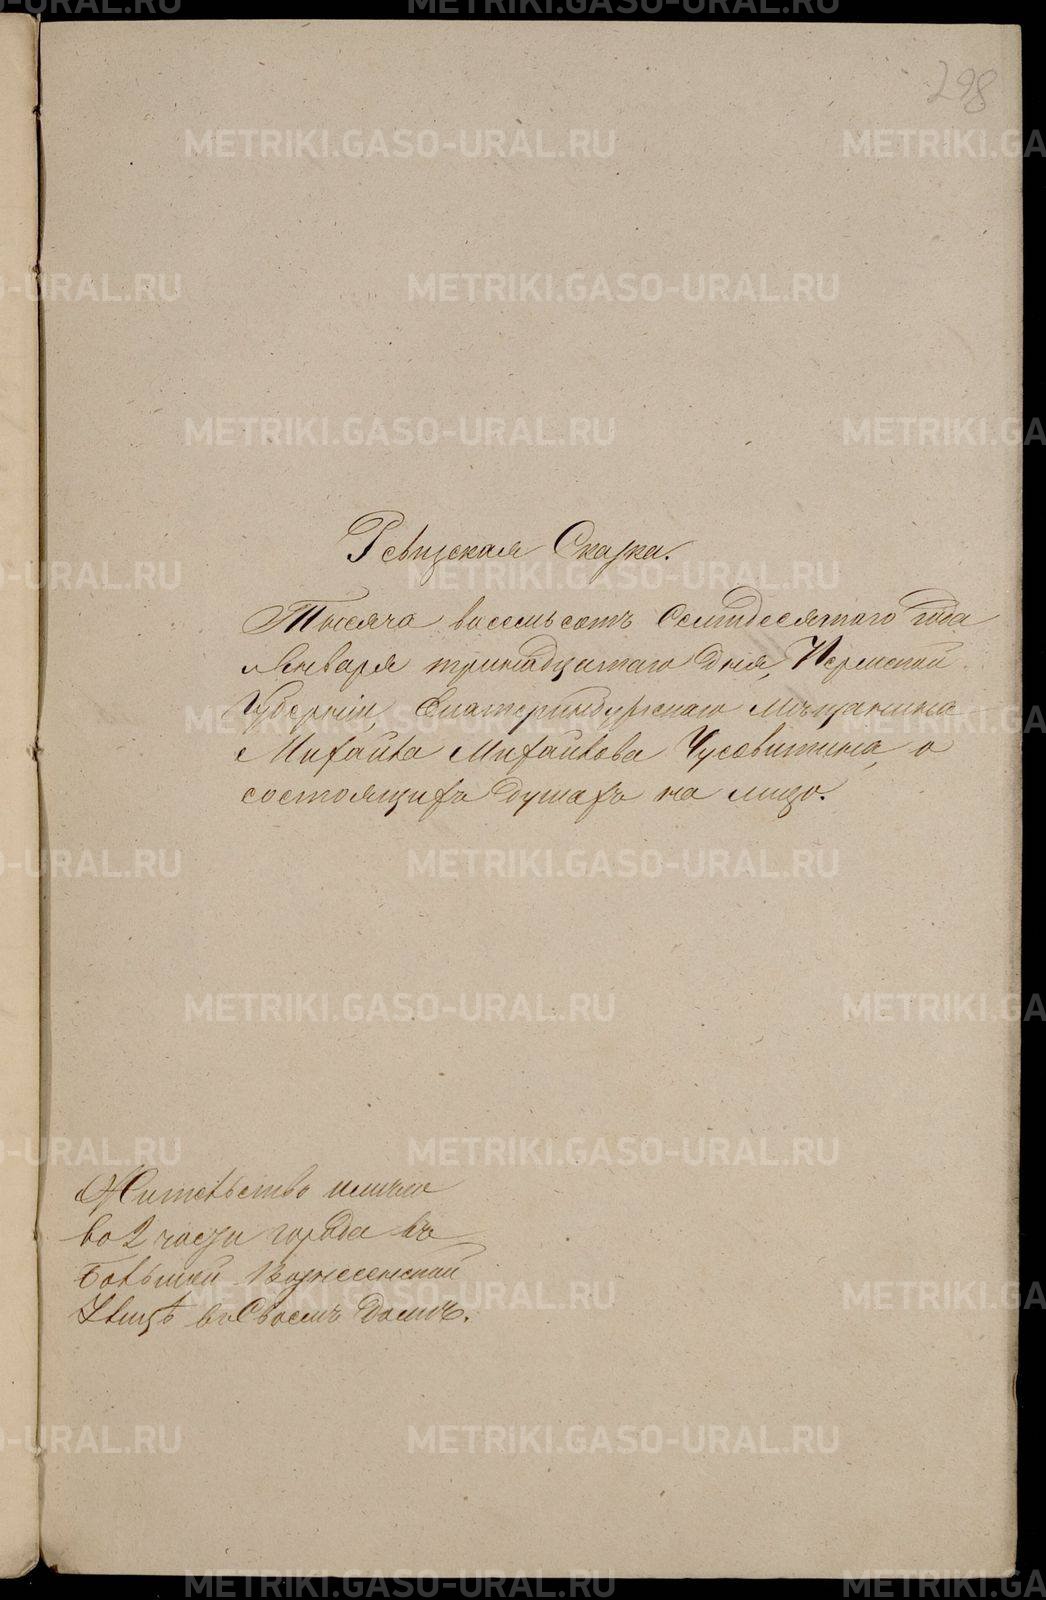 298
Ревизская Сказка.
Тысяча восемьсотъ Семидесятаго года
Января тринадцатаго дня, Пермской
Губерніи, Екатеринбургскаго Мѣщанина
Михайла Михайлова Чусовитина, о
состоящихъ душахъ на лицо.
Жительство имѣю
во 2 части города въ
Большой Вознесенской
Улицѣ въ Своемъ Домѣ.
METRIKI.GASO-URAL.RU